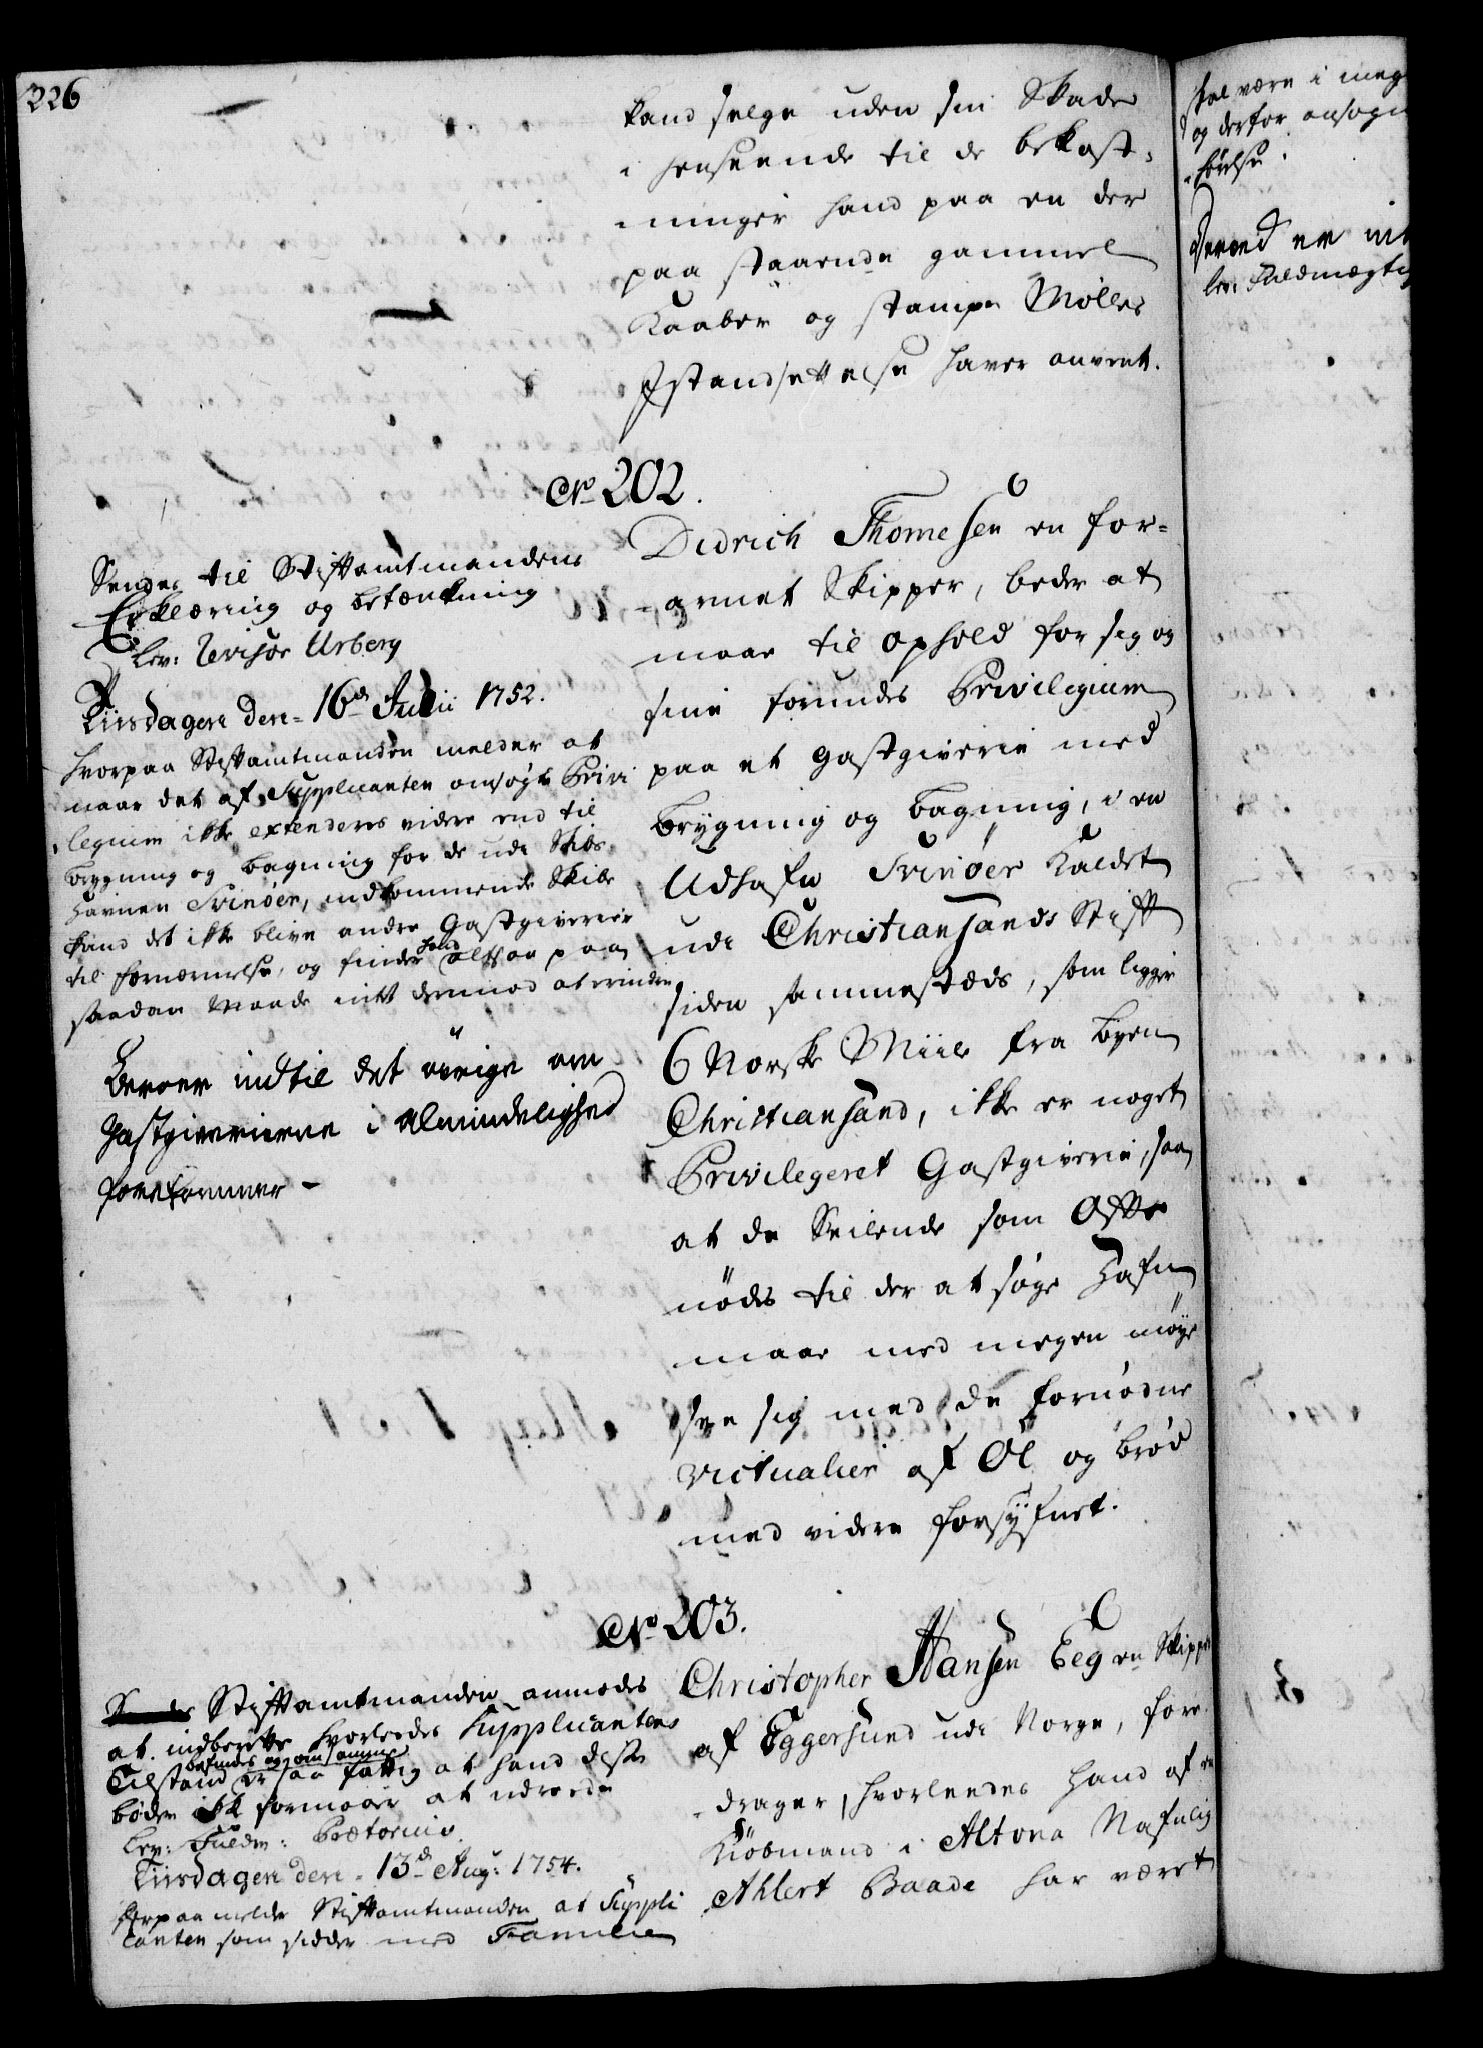 226
kand selge uden sin Skade
i henseende til de bekost-
ninger hand paa en der
paa staaende gammel
Kaaber og stampe Mølles
Istandsettelse haver anvent.
No 202.
Didrich Thomesen en for-
armet Skipper, beder at
maae til ophold for sig og
sine forundes Privilegium
paa et Gastgiverie med
brygning og bagning, i en
Udhafn Svinøer Kaldet
udi Christiansands Stift
siden sammestæds, som ligger
6 Norske Miile fra byen
Christiansand, ikke er noget
Privilegeret Gastgiverie, saa
at de Seilende som Ofte
nødes til der at søge Hafn
maae med megen møye
see sig med de fornødne
victualier af Øl og brød
med videre forsyfnet.
Sendes til Stiftamtmandens
Erklæring og betænkning
lev: Revisor Urberg
Tiisdagen den 16de Julii 1752.
hvorpaa Stiftamtmanden melder at
naar det af Supplicanten ansøgte Privi
legium ikke extenderes videre end til
brygning og bagning for de udi Skibs
Havnen Svinøer, indkommende Skibe
kand det ikke blive andre Gastgiverier
til fornærmelse, og finder hand altsaa paa
saadan Maade intet dermod at erindre
Beroer indtil det øvrige om
Gastgiverierne i Almindelighed
forekommer -
No 203.
Christopher Hansen Eeg en Skipper
af Eggersund udi Norge, fore-
drager, hvorleedes hand af en
Kiøbmand i Altona Nafnlig
Ahlert Baade har været
Stiftamtmanden anmodes
at indberette hvorleedes Supplicantens
Tilstand befindes og om hand er saa fattig at hand disse
bøder ikke formaaer at udreede
lev: Fuldm: Prætorius
Tiisdagen den 13de Aug: 1754.
herpaa melder Stiftamtmanden at Suppli
canten som sidder med Familie
skal være i meg
og derfor ansøge
Derved er int
lev: Fuldmægtig